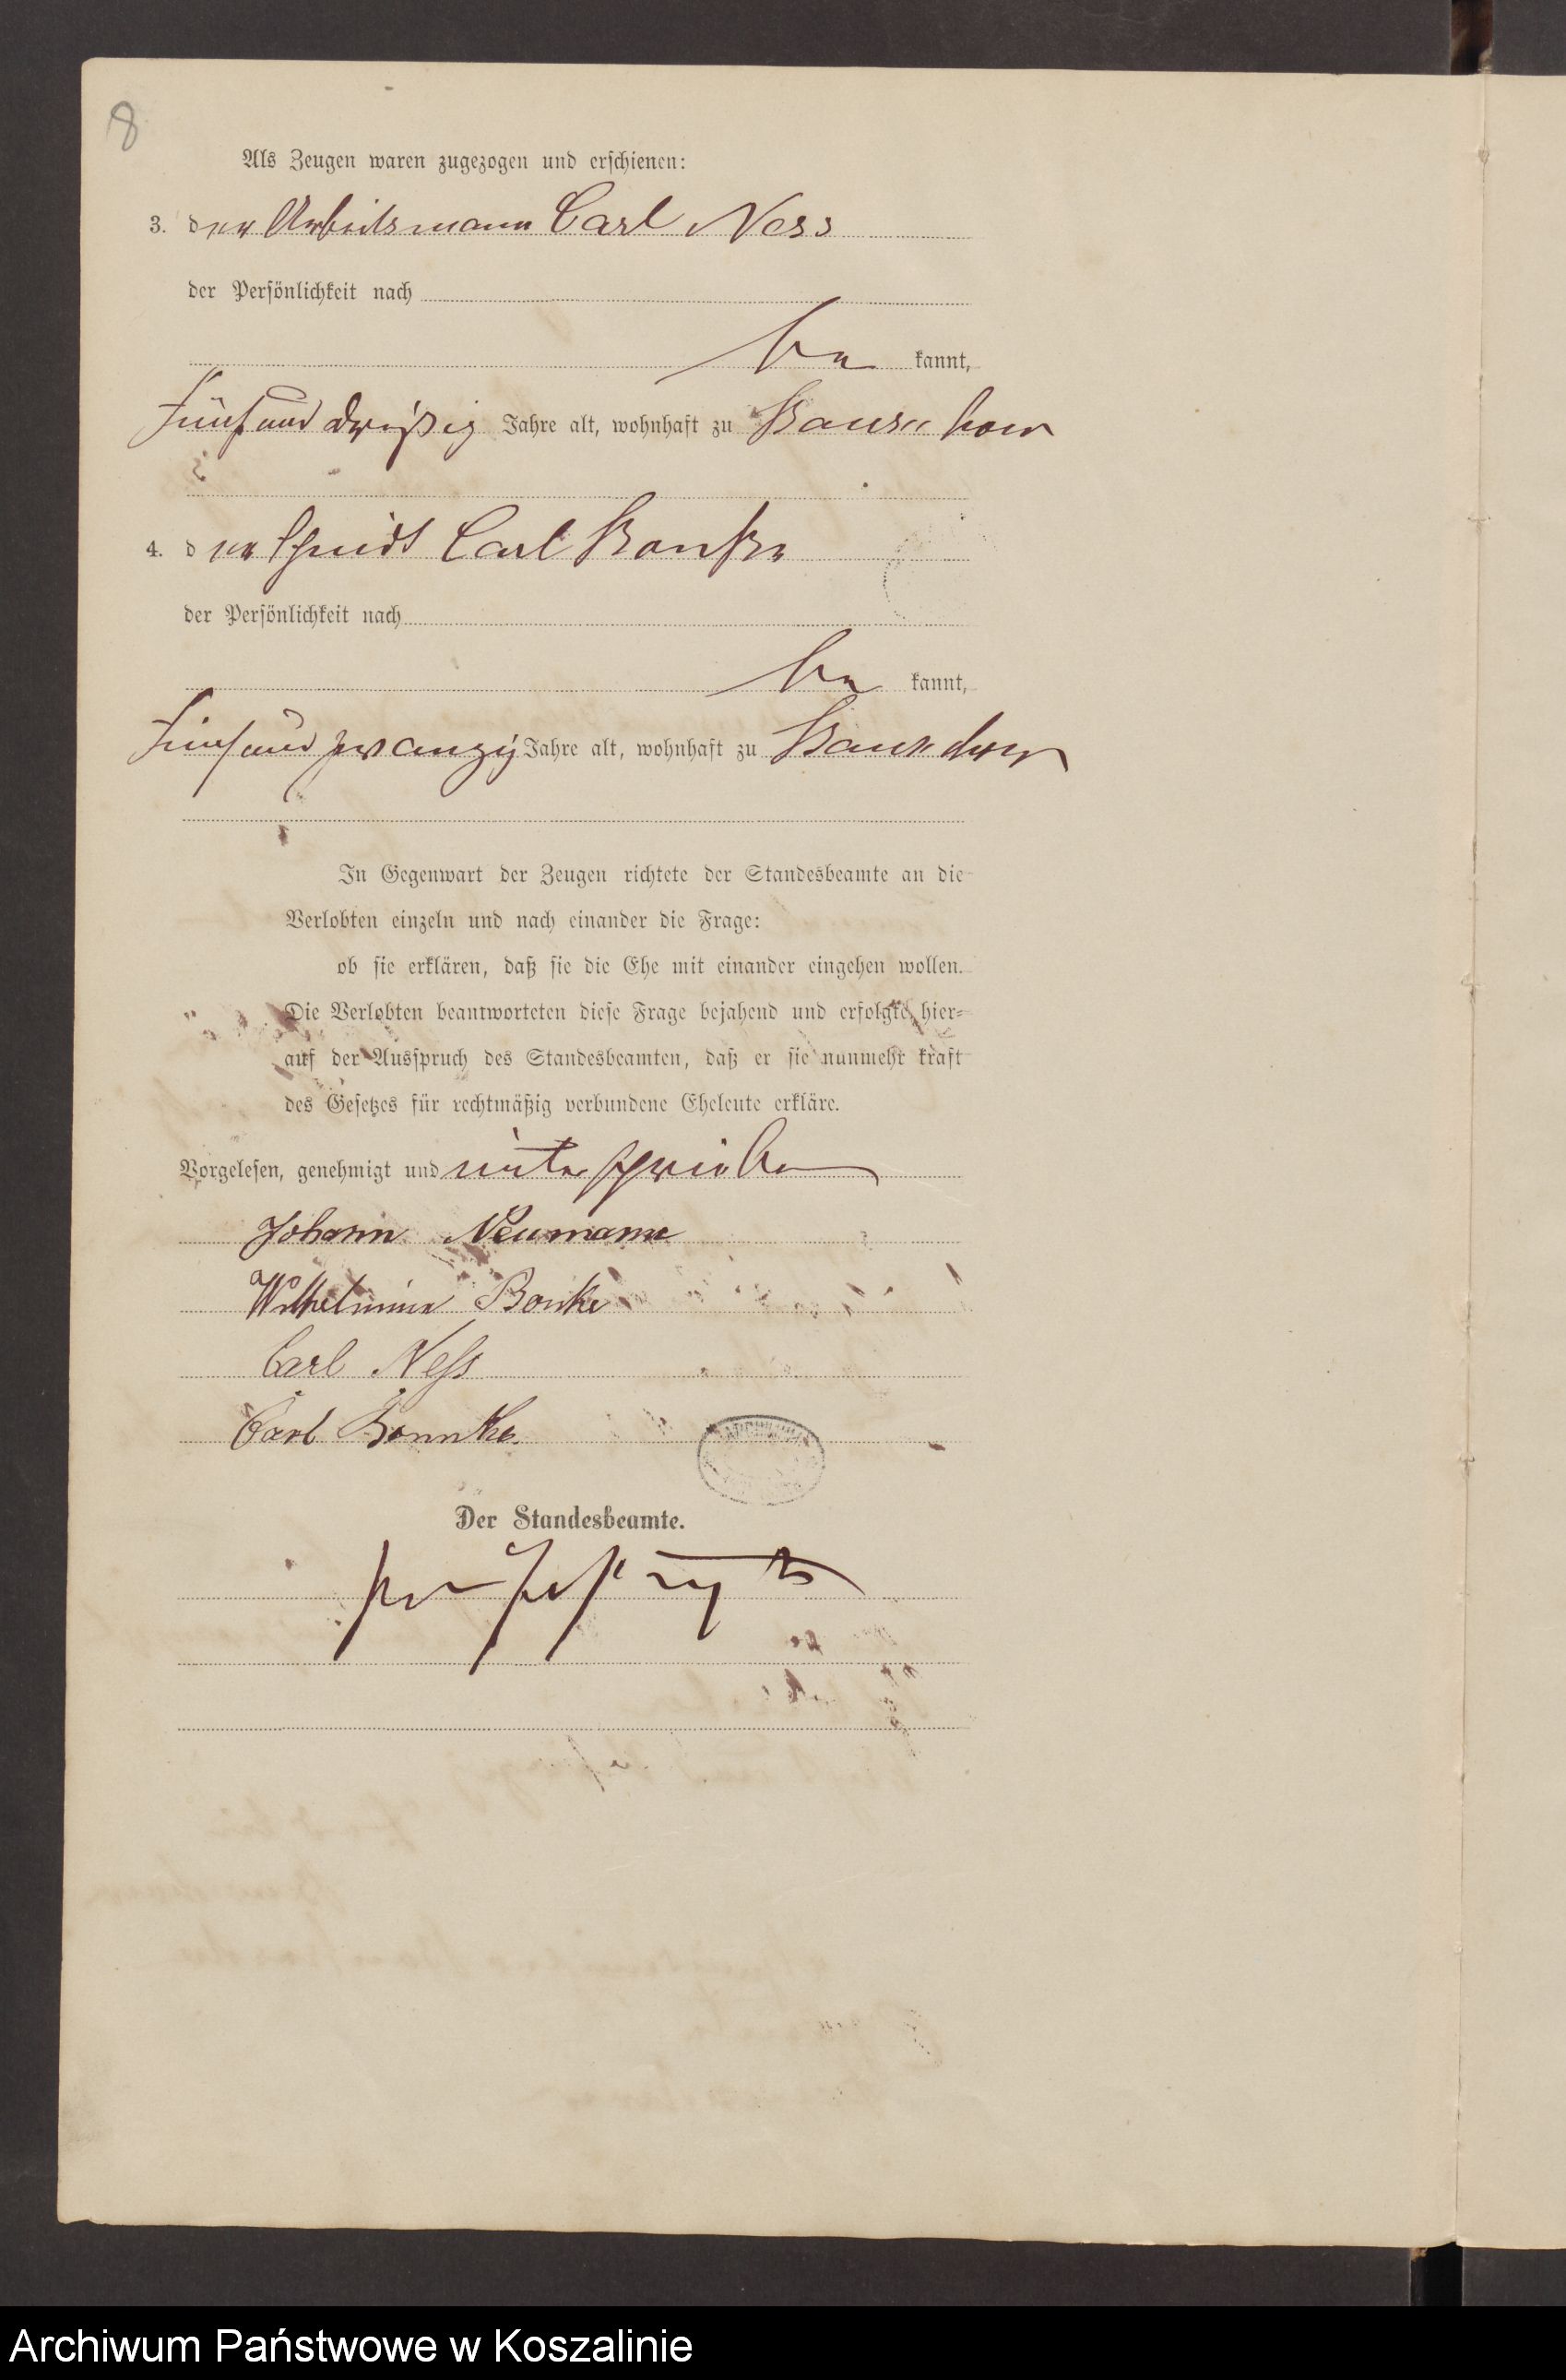 8
Als Zeugen waren zugezogen und erschienen:
3. der Arbeitsmann Carl Ness
der Persönlichkeit nach
be kannt,
fünf und dreißig Jahre alt, wohnhaft zu
4. der Carl
der Persönlichkeit nach
be kannt,
fünf und zwanzig Jahre alt, wohnhaft zu
In Gegenwart der Zeugen richtete der Standesbeamte an die
Verlobten einzeln und nach einander die Frage:
ob sie erklären, daß sie die Ehe mit einander eingehen wollen.
Die Verlobten beantworteten diese Frage bejahend und erfolgte hier-
auf der Ausspruch des Standesbeamten, daß er sie nunmehr kraft
des Gesetzes für rechtmäßig verbundene Eheleute erkläre.
Vorgelesen, genehmigt und unterschrieben
Johann Neumann
Wilhelmine Bonke
Carl Neß
Carl Bonnke.
Der Standesbeamte.
Archiwum Państwowe w Koszalinie